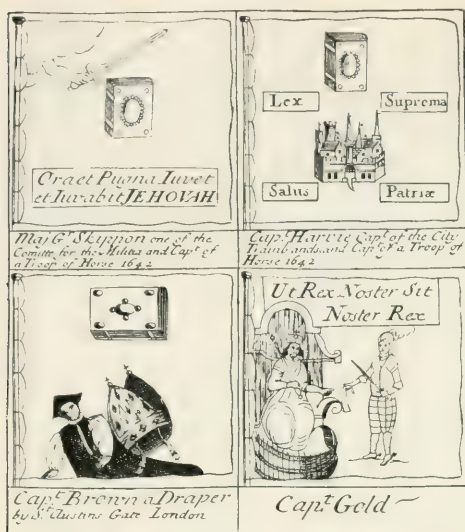 Ora et Pugna Iuvet
et Iuvabit JEHOVAH
Maj Gl Skippon one of the
Comitte for the Militia and Capt of
a Troop of Horse 1642
Lex Suprema
Salus Patriæ
Capt Harvie Capt of the City
Trainbands and Capt of a Troop of
Horse 1642
Capt Brown a Draper
by St Austins Gate London
Ut Rex Noster Sit
Noster Rex
Capt Gold